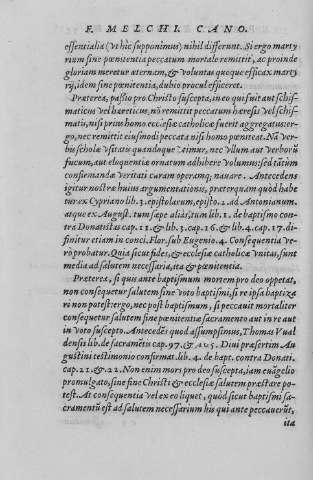 F. MELCHI. CANO.
essentialia (vt hic supponimus) nihil differunt. Si ergo marty
rium sine pœnitentia peccatum mortale remittit, ac proinde
gloriam meretur æternam, & voluntas quoque efficax marty
rij, idem sine pœnitentia, dubio procul efficeret.
Præterea, passio pro Christo suscepta, in eo qui fuit aut schis-
maticus vel hæreticus, nõ remittit peccatum hæresis vel schis-
matis, nisi prius homo ecclesiæ catholicæ fuerit aggregatus: er-
go, nec remittit eiusmodi peccata nisi homo pœniteat. Nã ver-
bis scholæ vsitatis quandoque vtimur, nec vllum aut verborũ
fucum, aut eloquentiæ ornatum adhibere volumus: sed tãtùm
confirmandæ veritati curam operamq; nauare. Antecedens
igitur nostræ huius argumentationis, præterquam quòd habe
tur ex Cypriano lib. 1. epistolarum, epist. 2. ad Antonianum.
atque ex August. tum sæpe aliàs, tum lib. 1. de baptismo con-
tra Donatistas cap. 11. & lib. 3. cap. 16. & lib. 4. cap. 17. di-
finitur etiam in conci. Flor. sub Eugenio. 4. Consequentia ve-
rò probatur. Quia sicut fides, & ecclesiæ catholicæ vnitas, sunt
media ad salutem necessaria, ita & pœnitentia.
Præterea, si quis ante baptismum mortem pro deo oppetat,
non consequetur salutem sine voto baptismi, si re ipsa baptiza
ri non potest: ergo, nec post baptismum, si peccauit mortaliter
consequetur salutem sine pœnitentiæ sacramento aut in re aut
in voto suscepto. Antecedẽs quod assumpsimus, Thomas Vual
densis lib. de sacramẽtis cap. 97. & 105. Diui præsertim Au-
gustini testimonio confirmat lib. 4. de bapt. contra Donati.
cap. 21. & 22. Non enim mors pro deo suscepta, iam euãgelio
promulgato, sine fine Christi & ecclesiæ salutem præstare po-
test. At consequentia vel ex eo liquet, quòd sicut baptismi sa-
cramentũ est ad salutem necessarium his qui ante peccauerũt,
ita